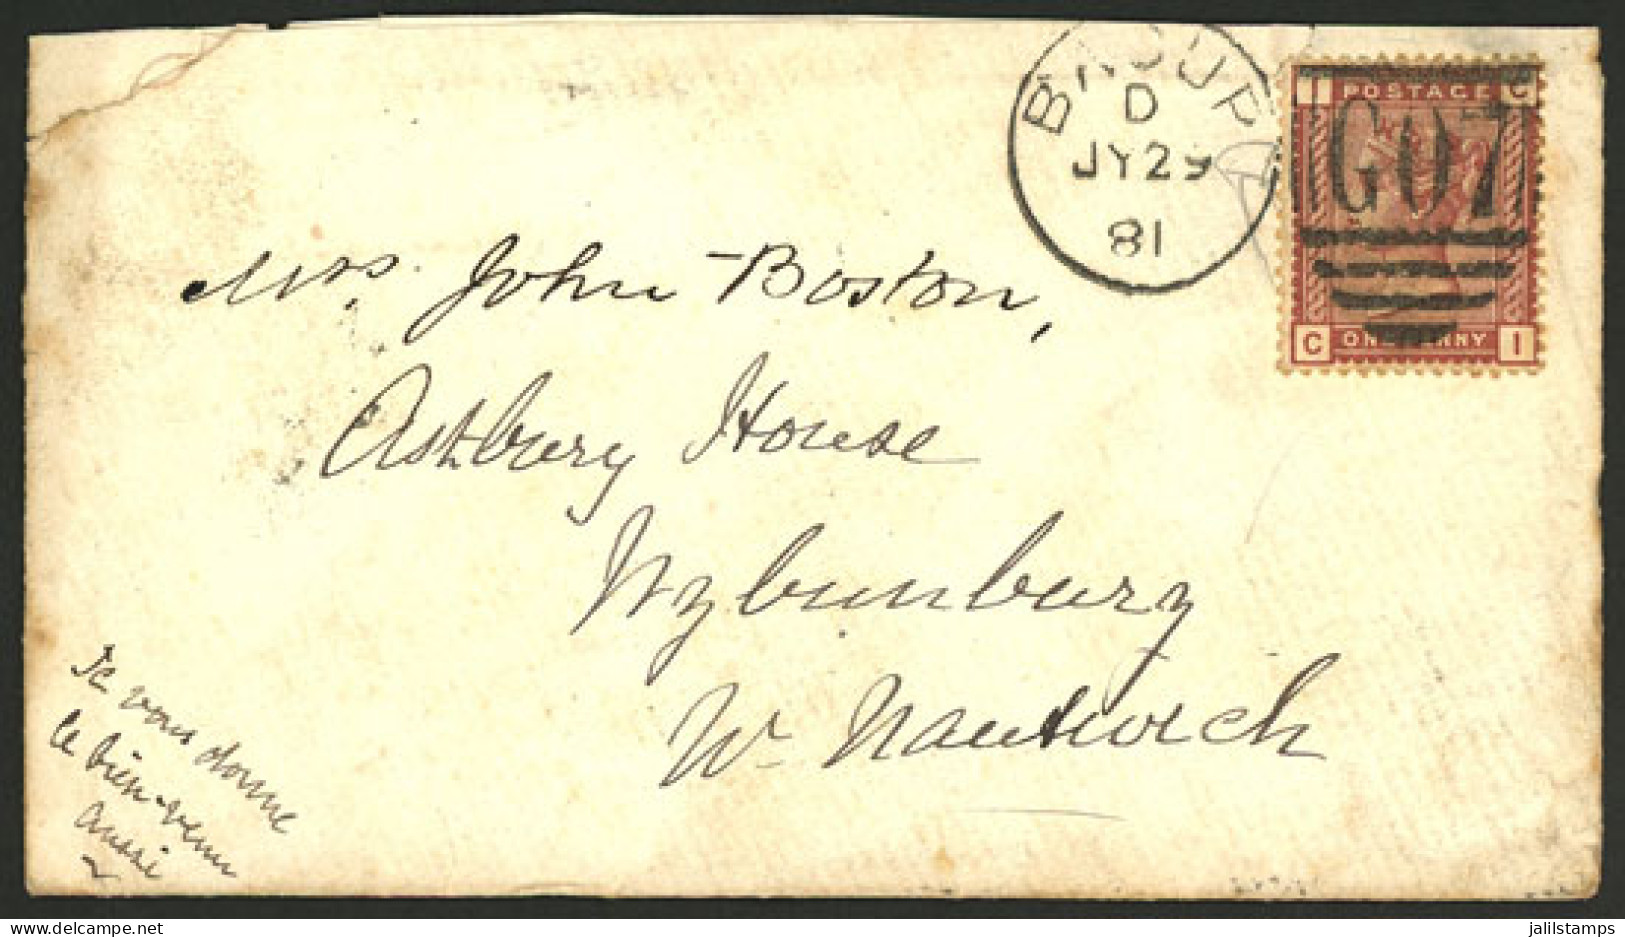 BACUP
D
JY 29
81
I POSTAGE C
G07
C ONE PENNY I
Mrs. John Boston,
Astbury House
Wybunbury
Nr. Nantwich
Je vous donne
le bien-venu
aussi
jalilstamps